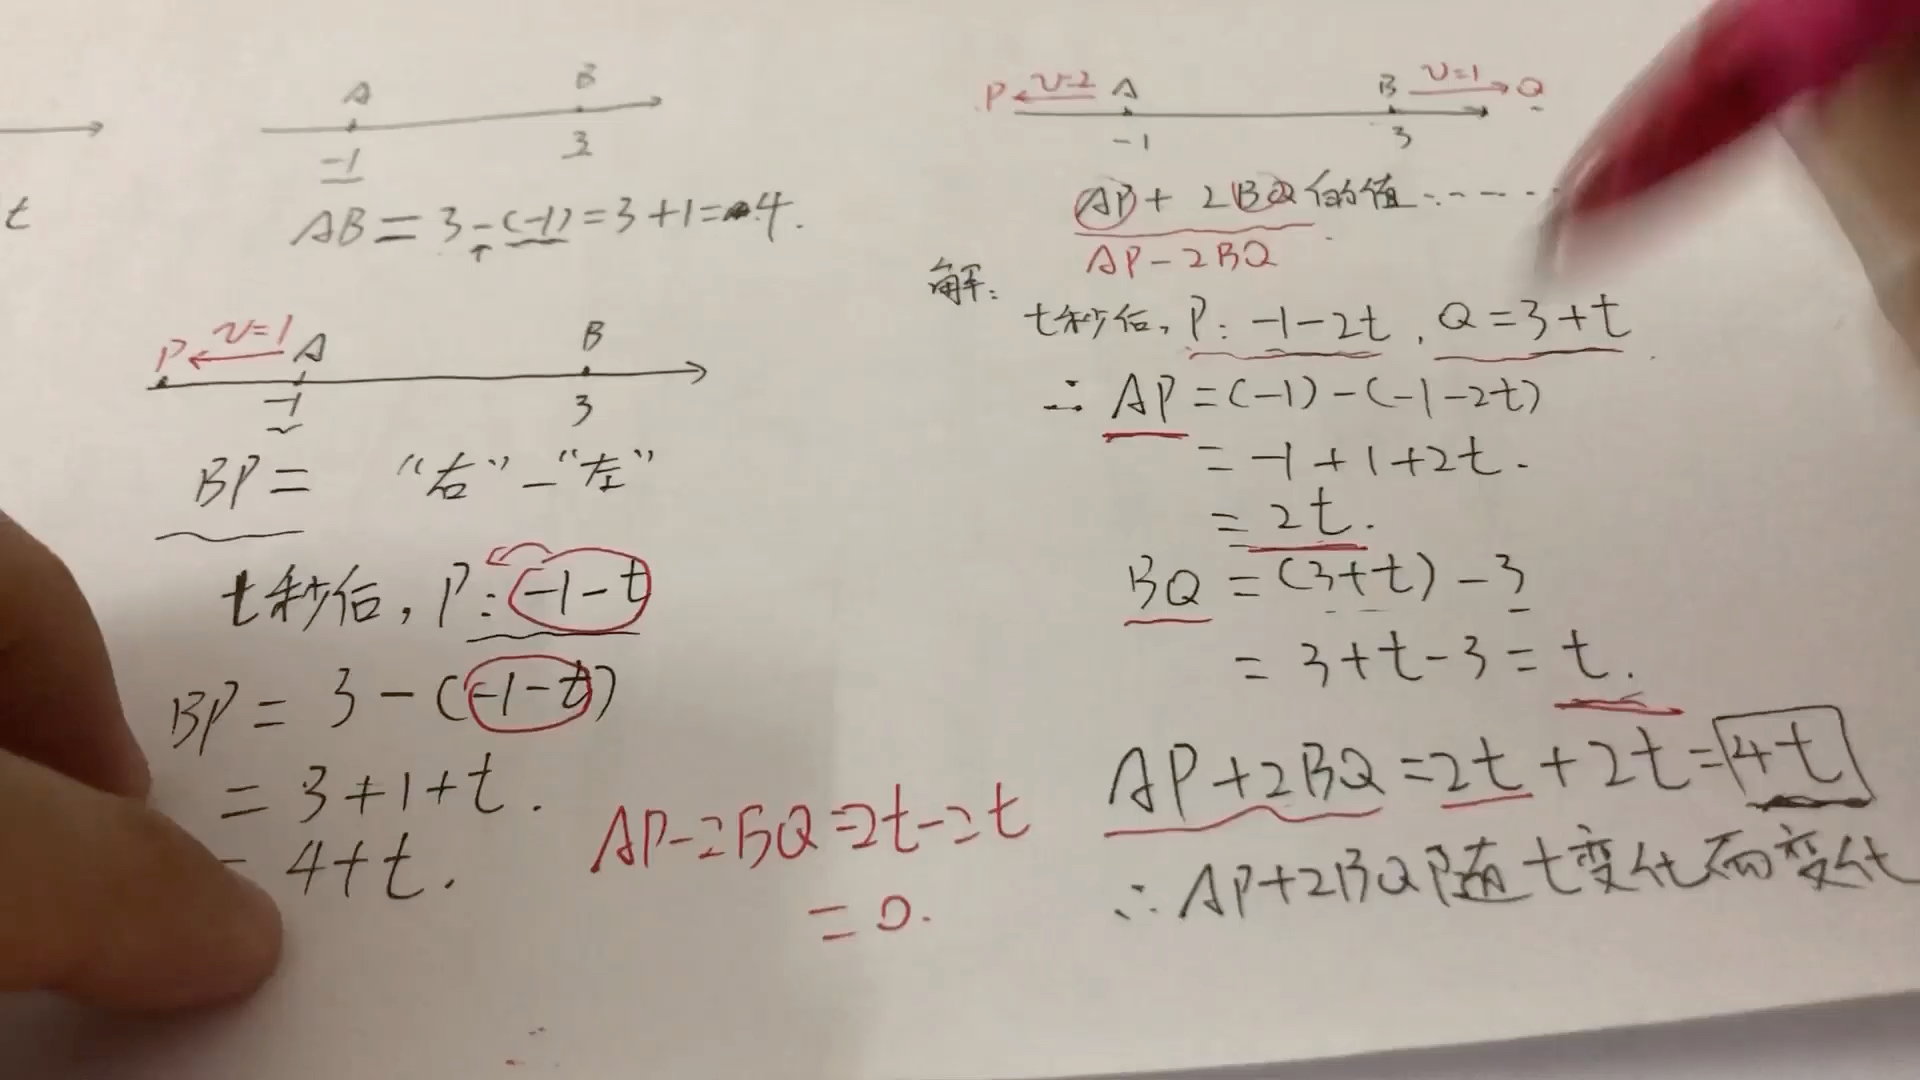 t
A B
-1 3
AB = 3-(-1) = 3+1 = 4.
P v=1 A B
-1 3
BP = “右”-“左”
t秒后, P: -1-t
BP = 3-(-1-t)
= 3+1+t.
= 4+t.
AP-2BQ=2t-2t
= 0.
P v=2 A B v=1 Q
-1 3
AP+2BQ的值......
AP-2BQ
解:
t秒后, P: -1-2t, Q=3+t
∴ AP=(-1)-(-1-2t)
= -1+1+2t.
= 2t.
BQ = (3+t)-3
= 3+t-3 = t.
AP+2BQ=2t+2t=4t
∴AP+2BQ随t变化而变化